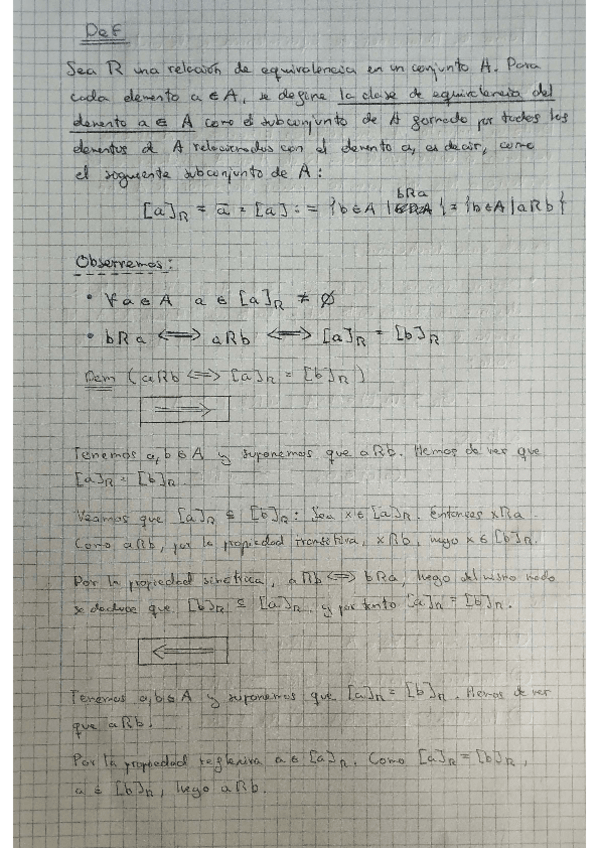 Def
Sea R una relación de equivalencia en un conjunto A. Para
cada elemento a ∈ A, se define la clase de equivalencia del
elemento a ∈ A como el subconjunto de A formado por todos los
elementos de A relacionados con el elemento a, es decir, como
el siguiente subconjunto de A:
bRa
[a]R = a̅ = [a] := {b ∈ A | } = {b ∈ A | aRb}
Observemos:
• ∀a ∈ A a ∈ [a]R ≠ ∅
• bRa ⟺ aRb ⟺ [a]R = [b]R
Dem (aRb ⟺ [a]R = [b]R)
⟹
Tenemos a, b ∈ A y suponemos que aRb. Hemos de ver que
[a]R = [b]R.
Veamos que [a]R ⊆ [b]R: Sea x ∈ [a]R. Entonces xRa.
Como aRb, por la propiedad transitiva, xRb, luego x ∈ [b]R.
Por la propiedad simétrica, aRb ⟺ bRa, luego del mismo modo
se deduce que [b]R ⊆ [a]R y por tanto [a]R = [b]R.
⟸
Tenemos a, b ∈ A y suponemos que [a]R = [b]R. Hemos de ver
que aRb.
Por la propiedad reflexiva a ∈ [a]R. Como [a]R = [b]R,
a ∈ [b]R, luego aRb.